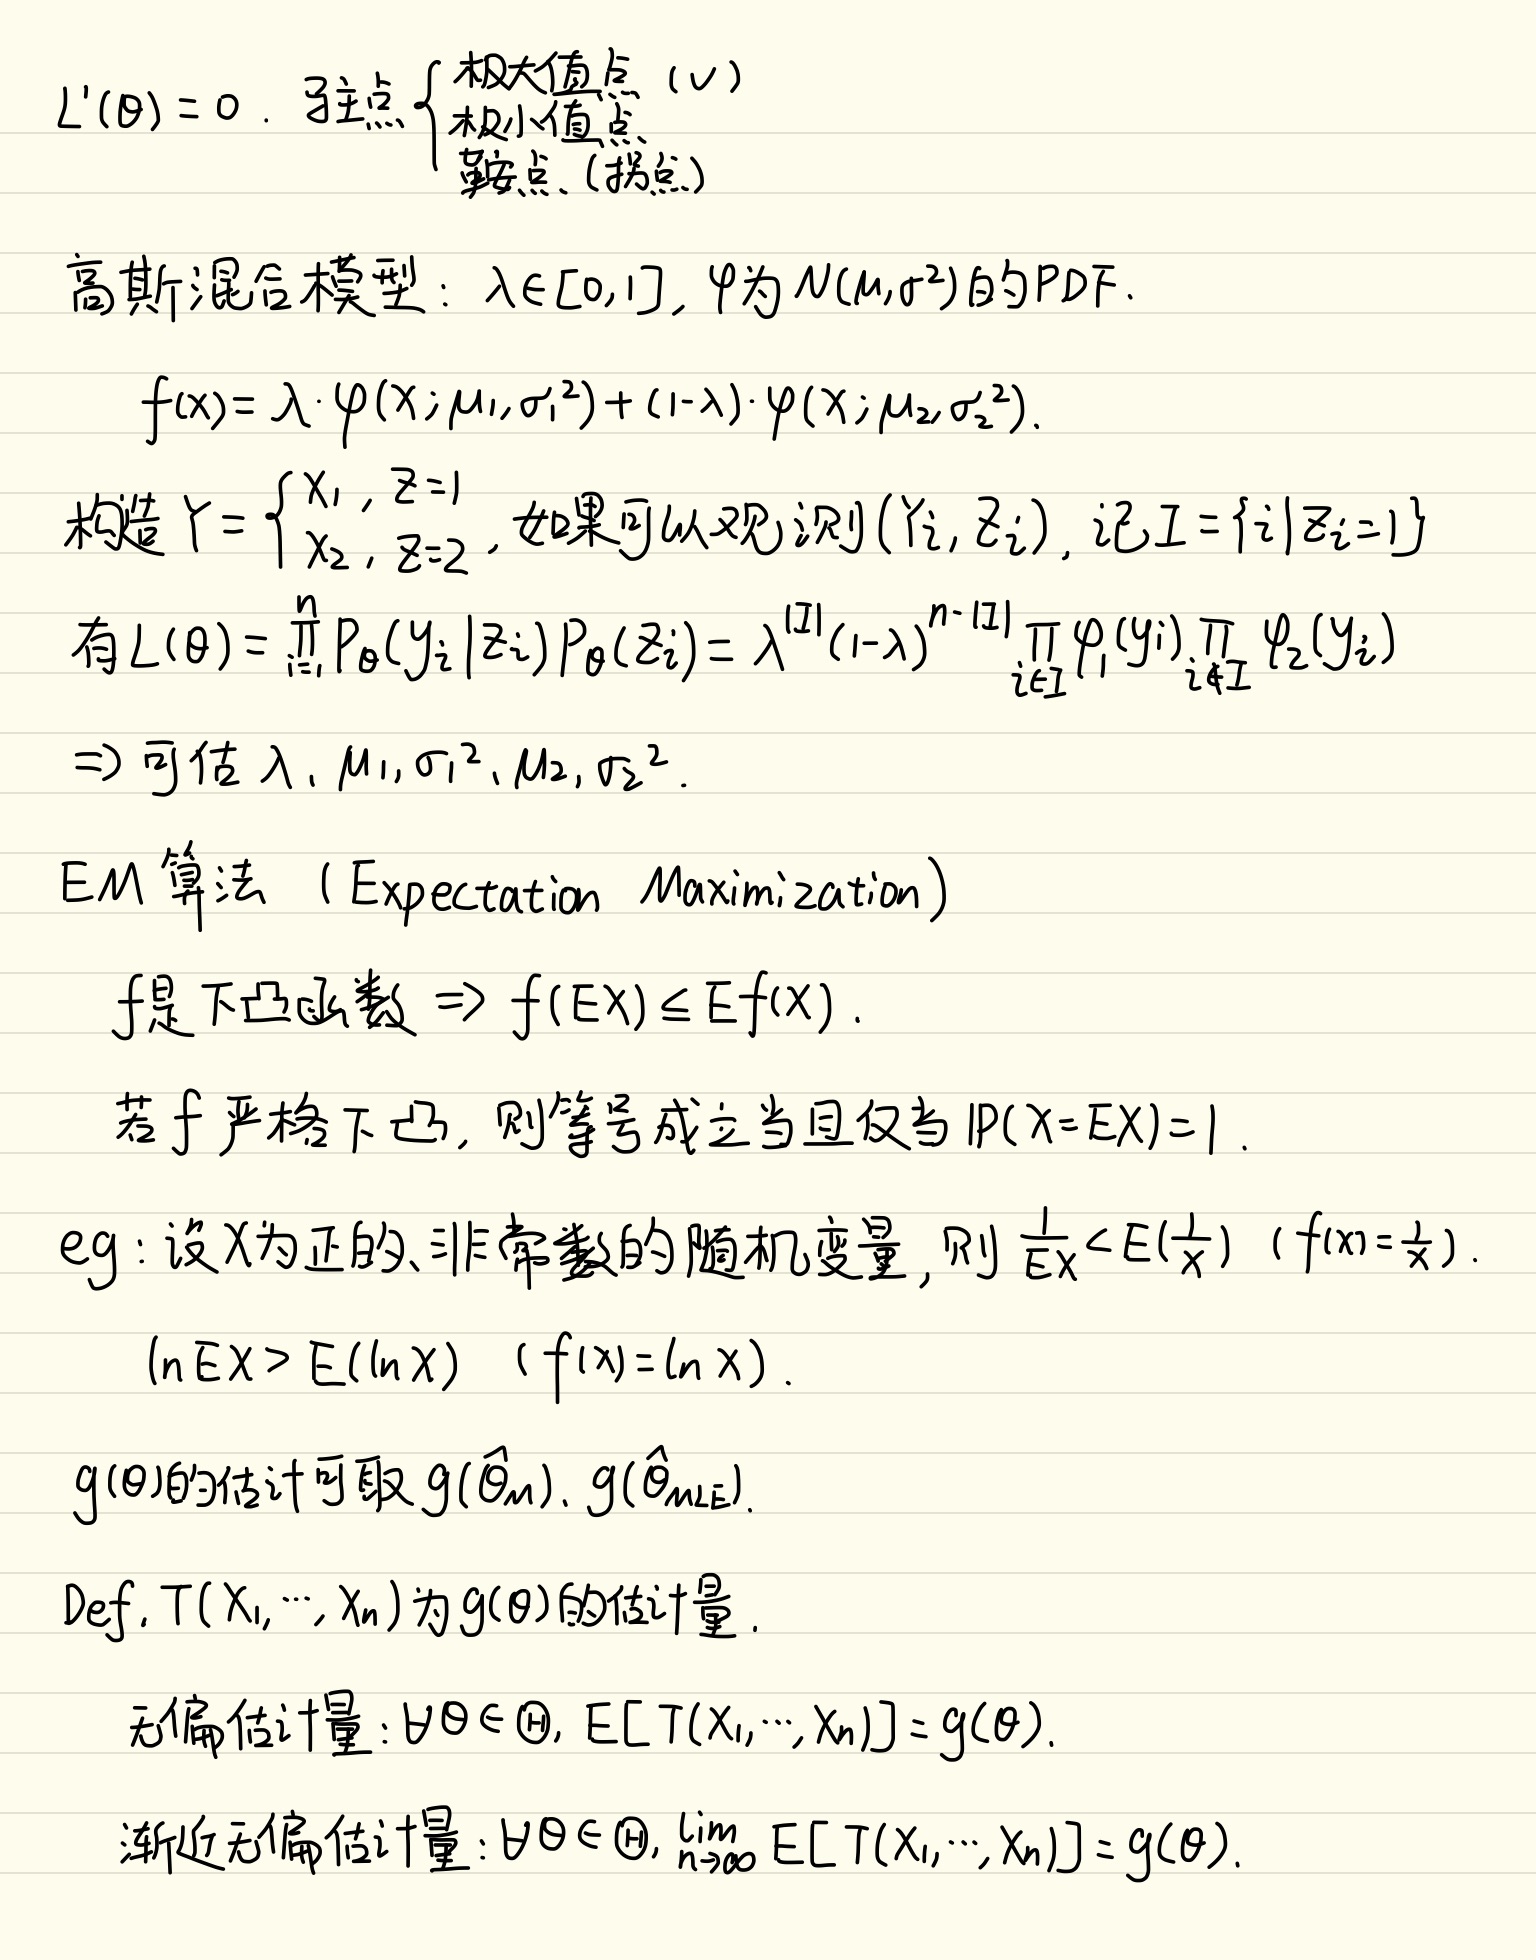 L'(θ) = 0. 驻点 { 极大值点 (√)
极小值点
鞍点、(拐点)
高斯混合模型: λ∈[0,1], φ为 N(μ,σ²)的PDF.
f(x) = λ·φ(x;μ₁,σ₁²) + (1-λ)·φ(x;μ₂,σ₂²).
构造 Y = { X₁, Z=1
X₂, Z=2 , 如果可以观测(Yᵢ, Zᵢ), 记 I = {i | Zᵢ=1}
有 L(θ) = ∏ᵢ₌₁ⁿ P_θ(yᵢ|zᵢ) P_θ(zᵢ) = λ^|I| (1-λ)^(n-|I|) ∏_{i∈I} φ₁(yᵢ) ∏_{i∉I} φ₂(yᵢ)
⇒ 可估 λ、μ₁, σ₁²、μ₂, σ₂².
EM 算法 (Expectation Maximization)
f是下凸函数 ⇒ f(EX) ≤ Ef(X).
若 f 严格下凸, 则等号成立当且仅当 ℙ(X=EX)=1.
eg: 设X为正的、非常数的随机变量, 则 1/EX < E(1/X) (f(x)=1/x).
ln EX > E(ln X) (f(x)=ln x).
g(θ)的估计可取 g(θ̂_M)、g(θ̂_MLE).
Def. T(X₁,⋯,Xₙ)为g(θ)的估计量.
无偏估计量: ∀θ∈Θ, E[T(X₁,⋯,Xₙ)] = g(θ).
渐近无偏估计量: ∀θ∈Θ, lim_{n→∞} E[T(X₁,⋯,Xₙ)] = g(θ).